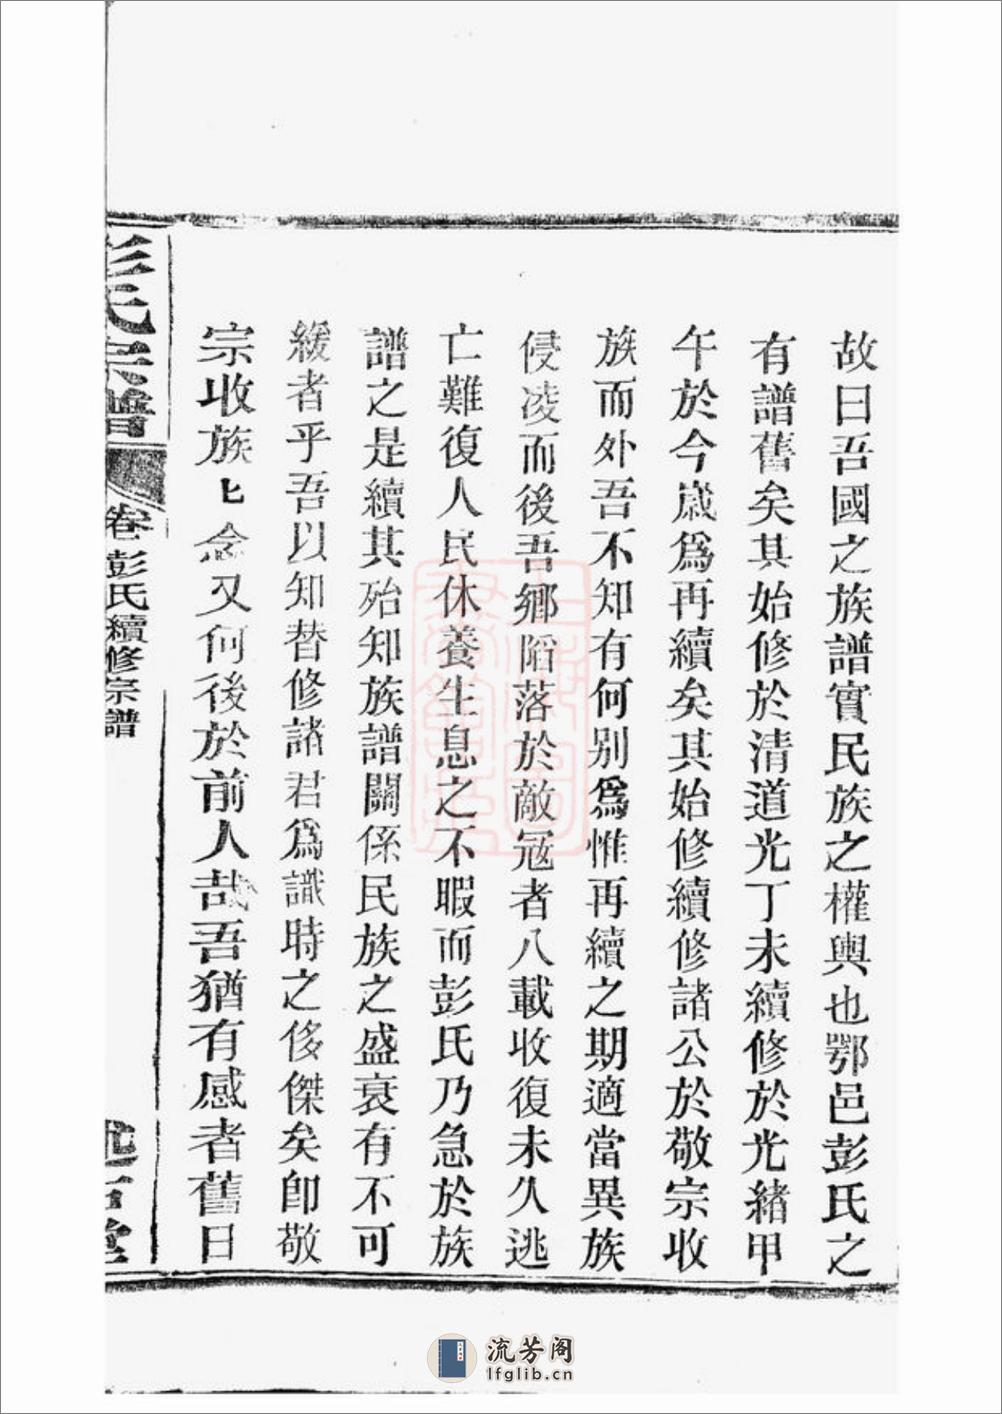 故曰吾國之族譜實民族之權輿也鄂邑彭氏之
有譜舊矣其始修於清道光丁未續修於光緒甲
午於今歲爲再續矣其始修續修諸公於敬宗收
族而外吾不知有何别爲惟再續之期適當異族
侵凌而後吾鄉陷落於敵寇者八載收復未久逃
亡難復人民休養生息之不暇而彭氏乃急於族
譜之是續其殆知族譜關係民族之盛衰有不可
緩者乎吾以知替修諸君爲識時之俊傑矣卽敬
宗收族上念又何後於前人哉吾猶有感者舊日
彭氏宗譜
卷 彭氏續修宗譜
述古堂
流芳阁
lfglib.cn